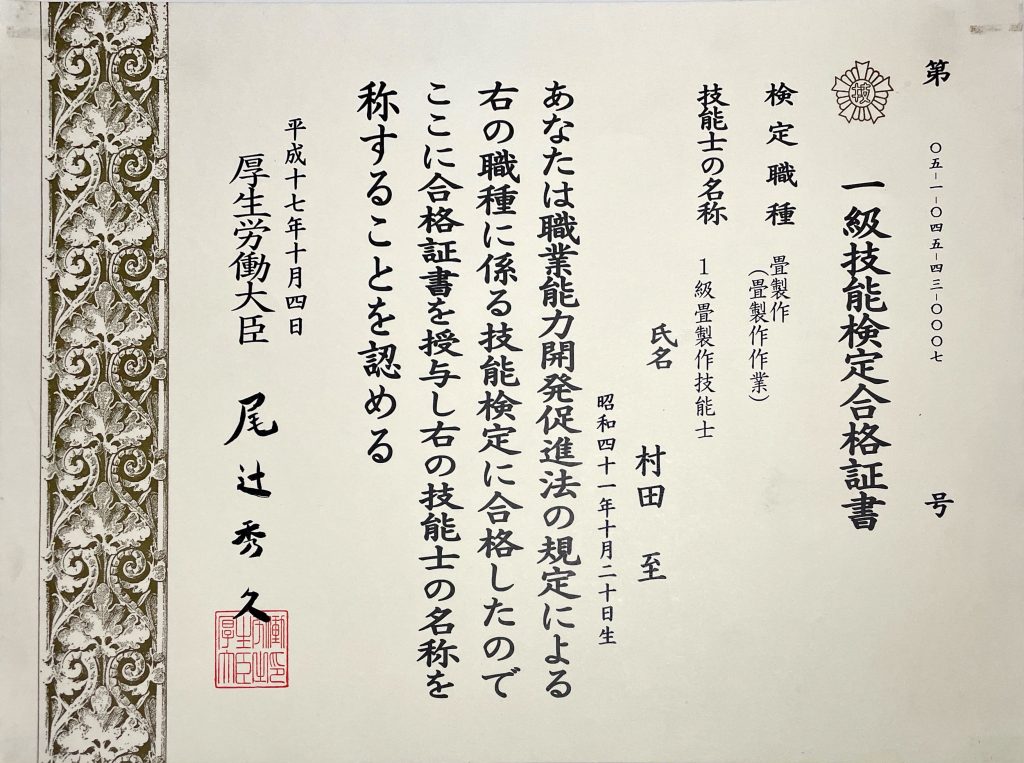 第 〇五-一-〇四五-四三-〇〇〇七 号
技
一級技能検定合格証書
検定職種 畳製作
(畳製作作業)
技能士の名称 1級畳製作技能士
氏名 村田 至
昭和四十一年十月二十日生
あなたは職業能力開発促進法の規定による
右の職種に係る技能検定に合格したので
ここに合格証書を授与し右の技能士の名称を
称することを認める
平成十七年十月四日
厚生労働大臣 尾辻秀久